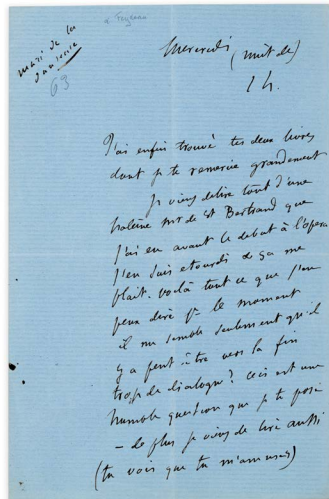 à Feydeau
mari de la
danseuse
69
Mercredi (nuit de)
2 h.
J'ai enfin trouvé tes deux livres
dont je te remercie grandement
Je viens de lire tout d'une
haleine Mr de St Bertrand que
j'ai eu avant le debut à l'opera
J'en suis etourdi & ça me
plait. voilà tout ce que j'en
peux dire pr le moment
il me semble seulement qu'il
y a peut-être vers la fin
trop de dialogue? ceci est une
humble question que je te pose
– de plus je viens de lire aussi
(tu vois que tu m'amuses)